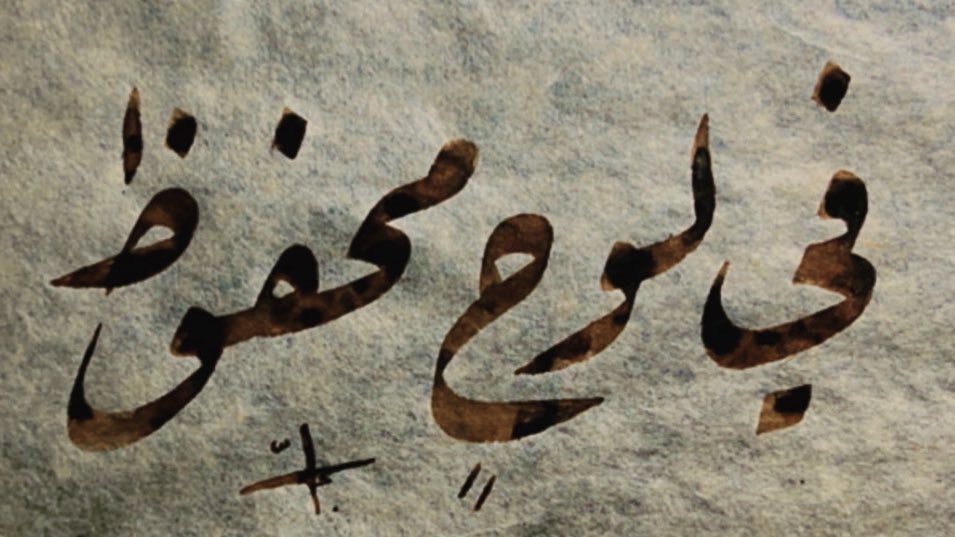 في لوحٍ محفوظ